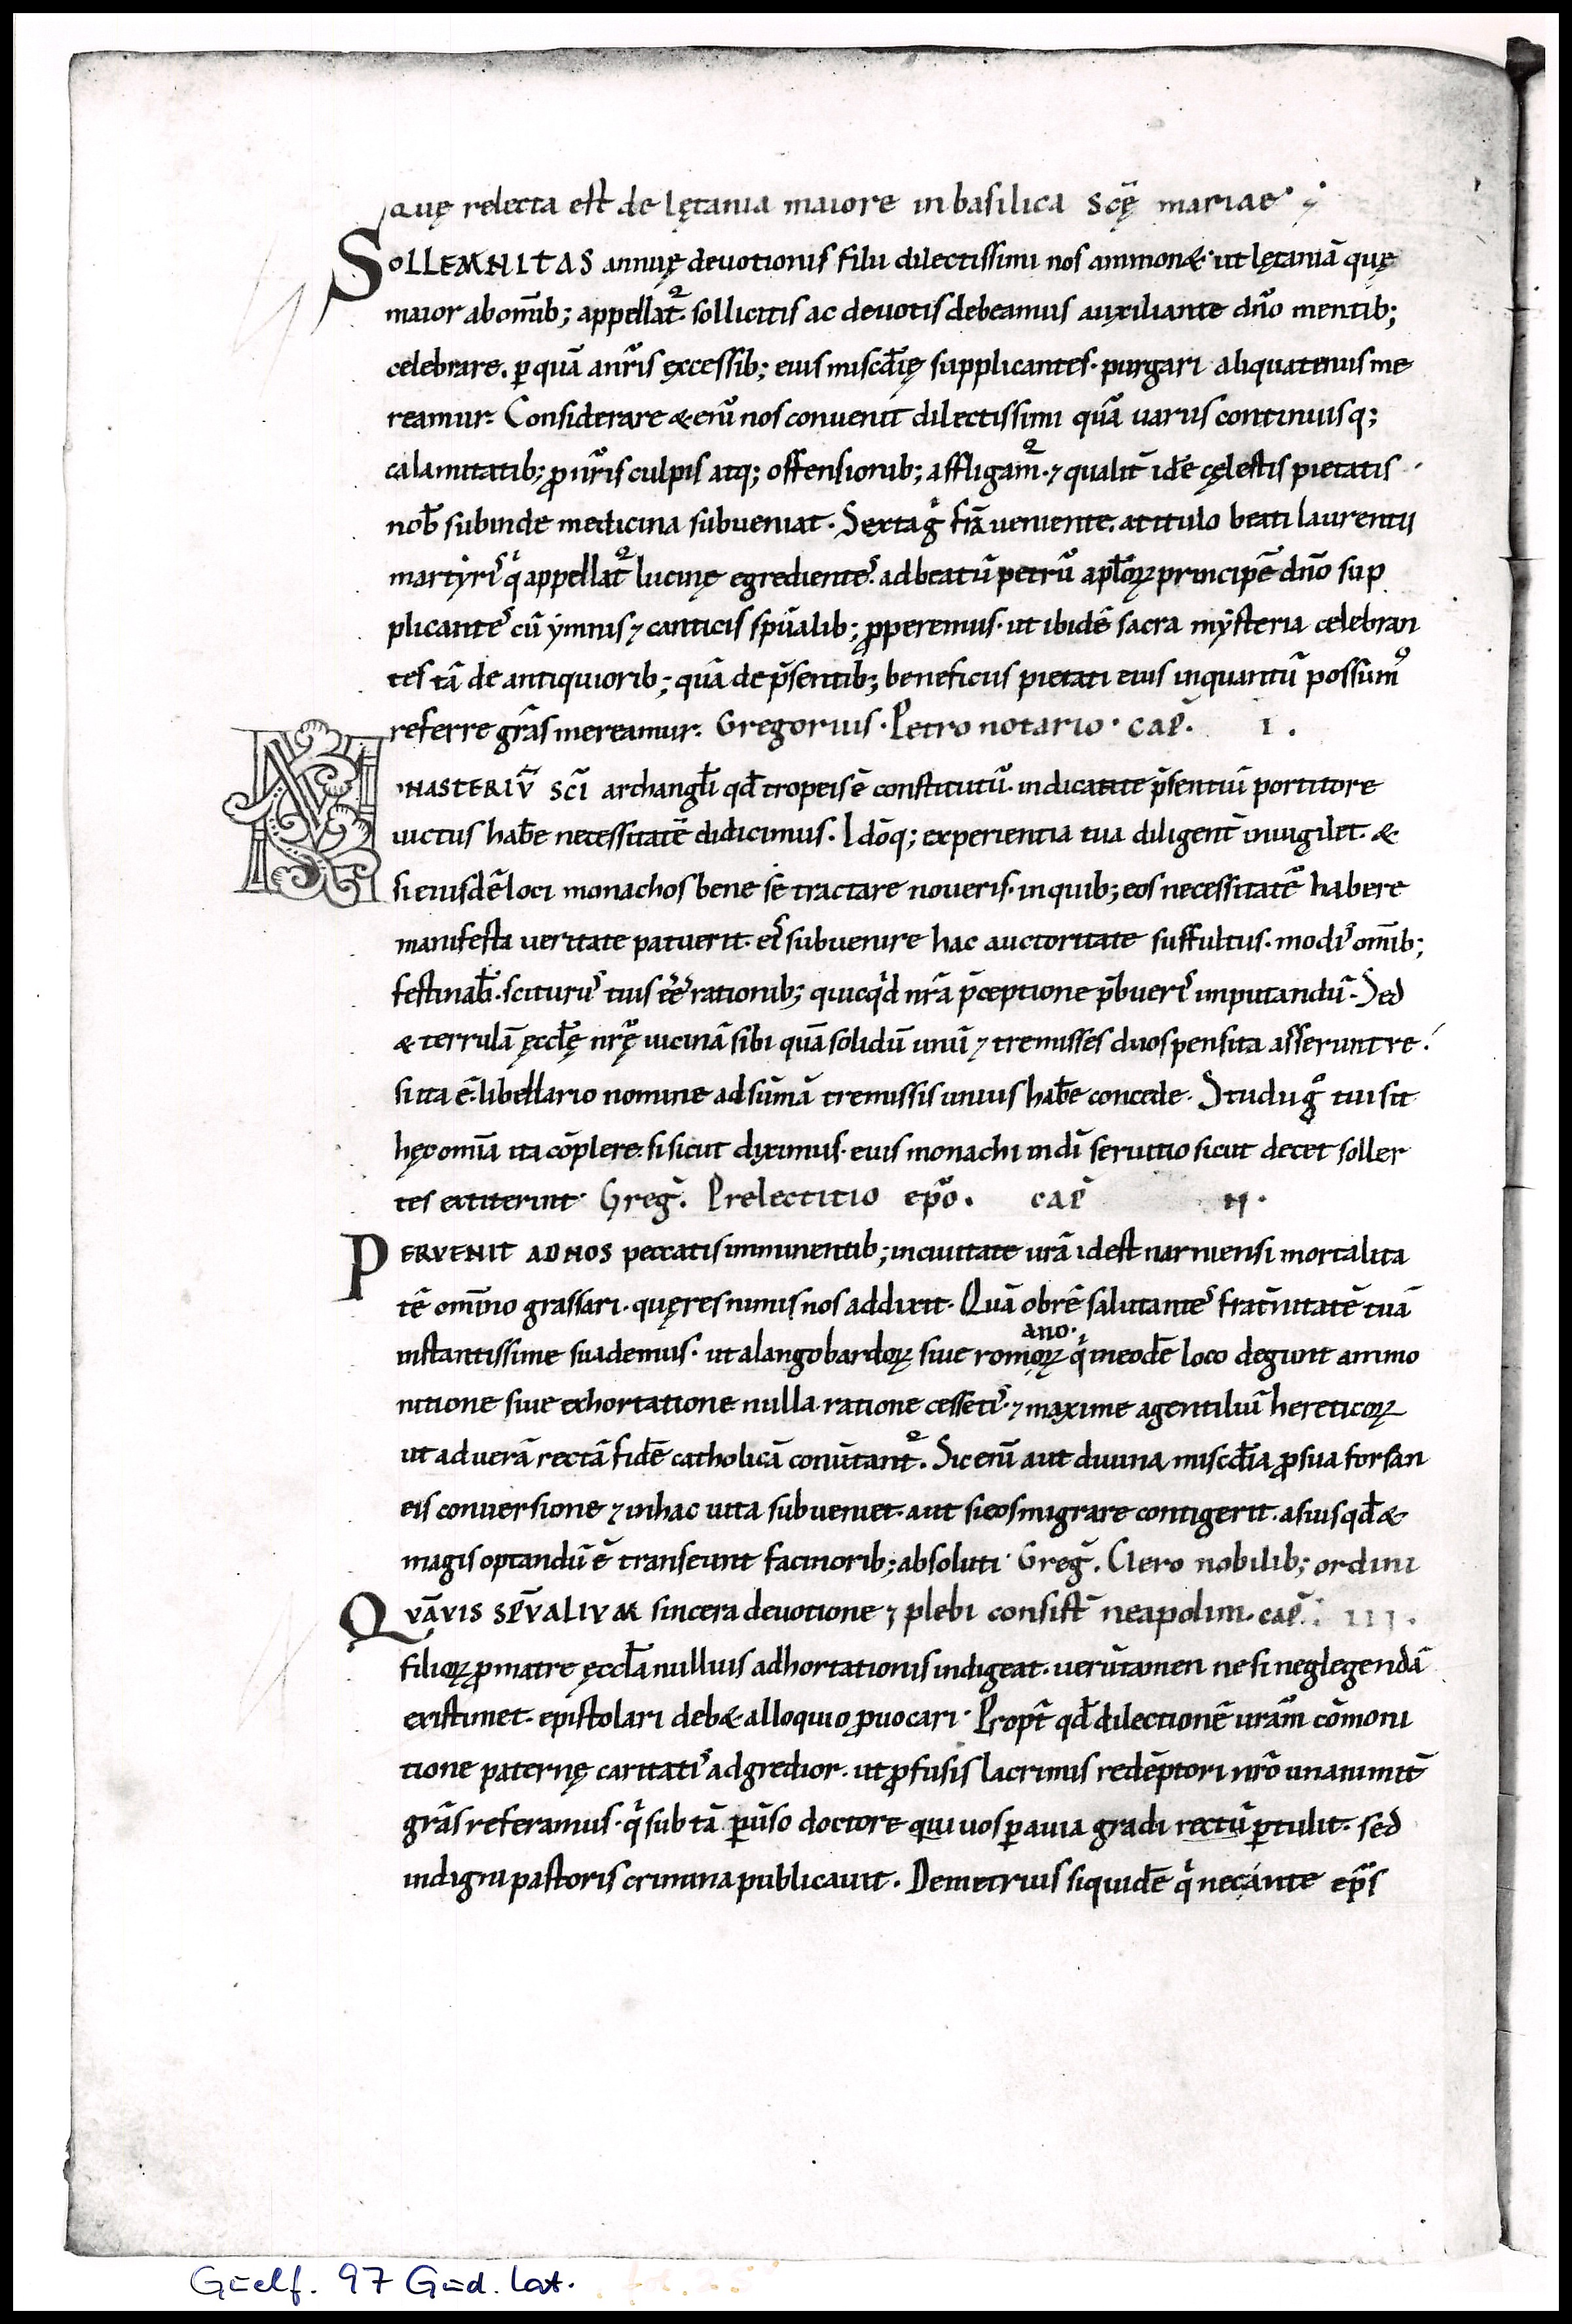 Quę relecta est de lętania maiore in basilica scę̄ mariae
SOLLEMNITAS annuę deuotionis filii dilectissimi nos ammon&· ut lętaniā quę
maior ab om̄ib; appellat᷑· sollicitis ac deuotis debeamus auxiliante dn̄o mentib;
celebrare. ꝑ quā a nr̄is excessib; eius misc̄dię supplicantes· purgari aliquatenus me
reamur. Considerare & enī nos conuenit dilectissimi quā uariis continuisq;
calamitatib; ꝓ nr̄is culpis atq; offensionib; affligam᷑· ⁊ qualit̄ idē cęlestis pietatis
nob̄ subinde medicina subueniat. Sexta g̊ fr̄ia ueniente. a titulo beati laurentii
martyris qͥ appellat᷑ lucinę egredientes ad beatū petrū apl̄oꝝ principē dn̄o sup
plicantes cū ymnis ⁊ canticis spūalib; ꝓperemus· ut ibidē sacra mysteria celebran
tes tā de antiquiorib; quā de p̄sentib; beneficiis pietati eius inquantū possum᷒
referre gr̄as mereamur. Gregorius· Petro notario· cap̄. I.
MONASTERIV̄ SC̄I archangl̄i qd̄ tropeis ē constitutū· indicante p̄sentiū portitore
uictus hab̄e necessitatē didicimus. Idōq; experientia tua diligent̄ inuigilet· &
si eiusdē loci monachos bene se tractare noueris· in quib; eos necessitatē habere
manifesta ueritate patuerit· eis subuenire hac auctoritate suffultus· modis om̄ib;
festinab̄· sciturus tuis ēē rationib; quicqͥd nr̄a p̄ceptione p̄bueris imputandū. Sed
& terrulā ęccl̄ę nr̄ę uicinā sibi quā solidū unū ⁊ tremisses duos pensita asserunt re·
si ita ē· libellario nomine ad sūmā tremissis unius hab̄e concede. Studii g̊ tui sit
hęc om̄ia ita cōplere· si sicut diximus· eius monachi in dī seruitio sicut decet soller
tes extiterint· Greḡ. Prelectitio ep̄o. cap̄ II.
PERVENIT AD NOS peccatis imminentib; in ciuitate urā id est narniensi mortalita
tē om̄ino grassari· quę res nimis nos addixit. Quā ob rē salutantes frat̄nitatē tuā
instantissime suademus· ut a langobardoꝝ siue romoꝝ qͥ in eodē loco degunt ammo
ano·
nitione siue exhortatione nulla ratione cessetis· ⁊ maxime a gentiliū hereticoꝝ
ut ad uerā rectā fidē catholicā conūtant᷑. Sic enī aut diuina misc̄dia ꝓ sua forsan
eis conuersione ⁊ in hac uita subueniet· aut si eos migrare contigerit· a suis qd̄ &
magis optandū ē transeunt facinorib; absoluti· Greḡ. Clero nobilib; ordini
QVĀVIS SP̄VALIVM sincera deuotione ⁊ plebi consist̄ neapolim. cap̄. III.
filioꝝ ꝓ matre ęccl̄a nullius adhortationis indigeat· uerūtamen ne si neglegendā
existimet· epistolari deb& alloquio ꝓuocari· Propt̄ qd̄ dilectionē urām cōmoni
tione paternę caritatis adgredior· ut ꝓfusis lacrimis redēptori nr̄o unanimit̄
gr̄as referamus· qͥ sub tā ꝑūso doctore qui uos ꝑ auia gradi rectū ꝑtulit· sed
indigni pastoris crimina publicauit. Demetrius siquidē qͥ nec ante ep̄s
Guelf. 97 Gud. lat.